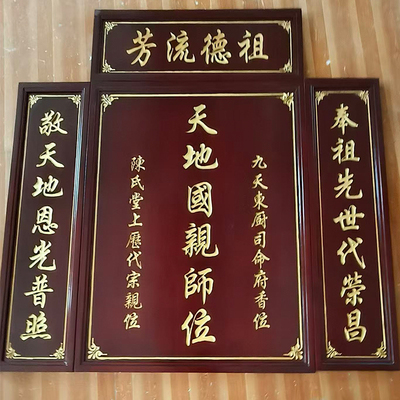 祖德流芳
奉祖先世代榮昌
九天東厨司命府香位
天地國親師位
陳氏堂上歷代宗親位
敬天地恩光普照